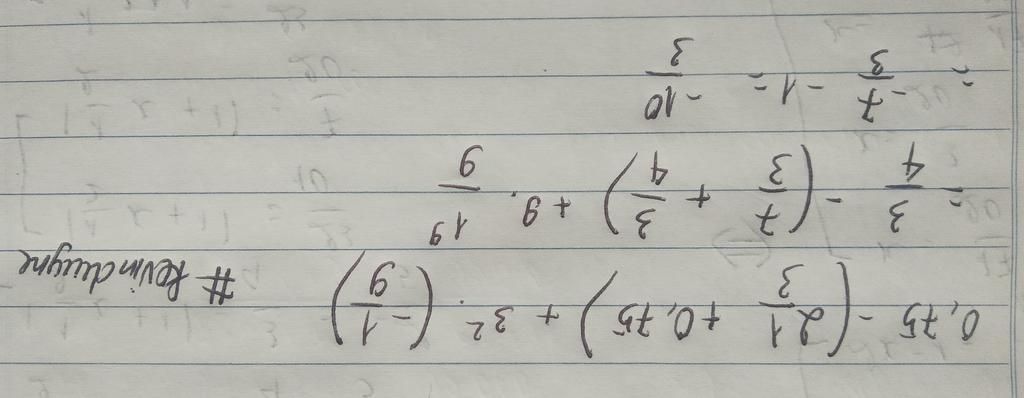 0,75 - (2 1/3 + 0,75) + 3² · (-1/9) # Kevinduyne
= 3/4 - (7/3 + 3/4) + 9 · 19/9
= -7/3 - 1 = -10/3